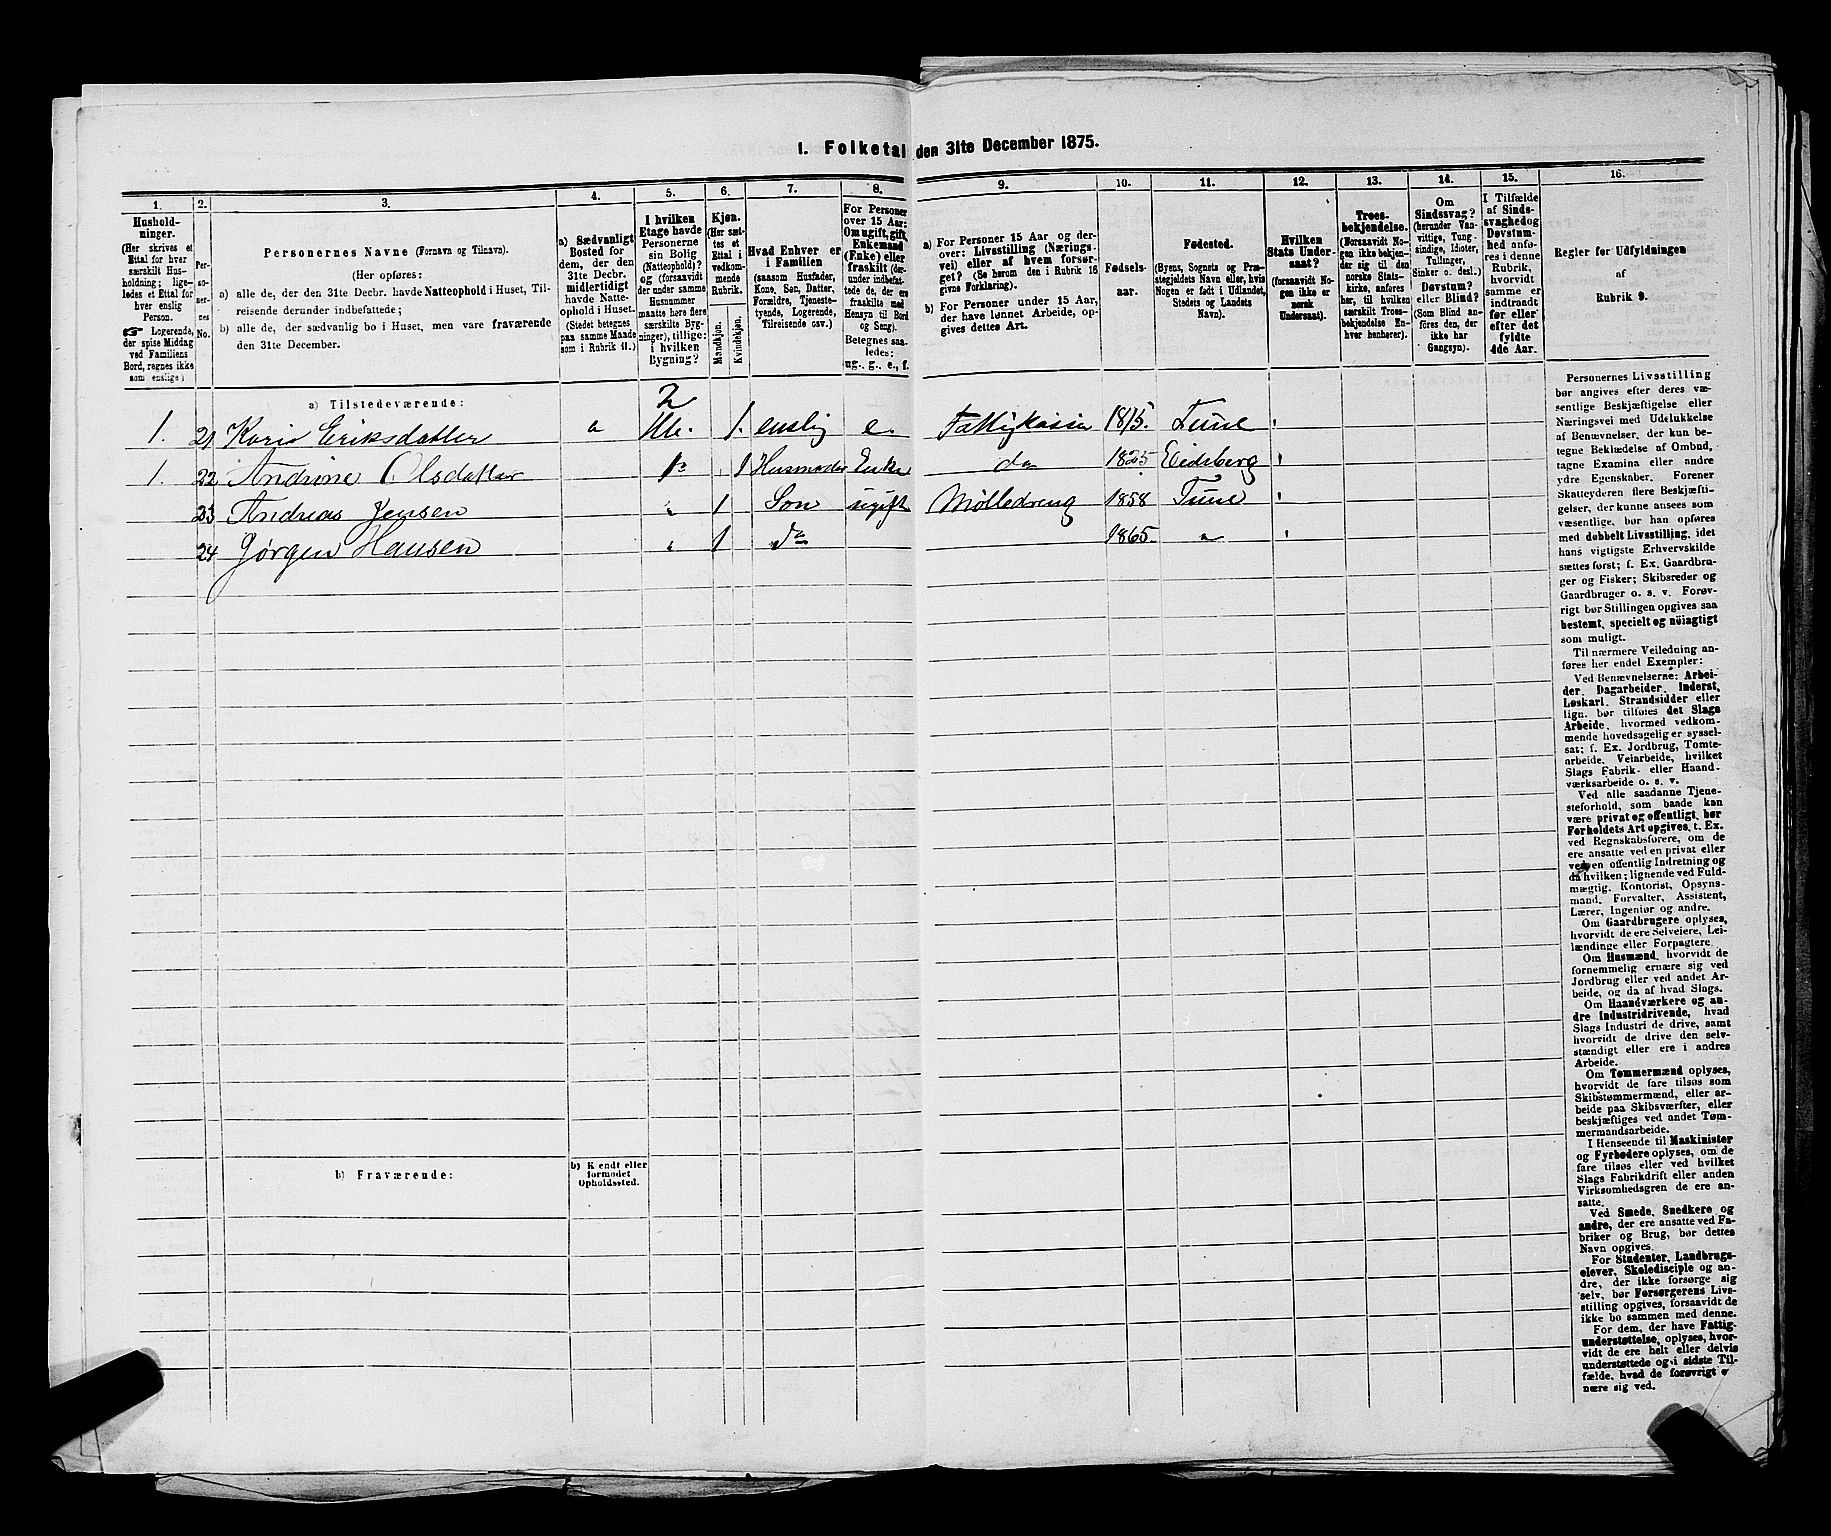 1. Folketal den 31te December 1875.
1. 2. 3. 4. 5. 6. 7. 8. 9. 10. 11. 12. 13. 14. 15. 16.
Hushold-
ninger.
(Her skrives et
Ettal for hver
særskilt Hus-
holdning; lige-
ledes et Ettal for
hver enslig
Person.
☞ Logerende,
der spise Middag
ved Familiens
Bord, regnes ikke
som enslige)
Per-
so-
ner-
nes
No.
Personernes Navne (Fornavn og Tilnavn).
(Her opføres:
a) alle de, der den 31te Decbr. havde Natteophold i Huset, Til-
reisende derunder indbefattede;
b) alle de, der sædvanlig bo i Huset, men vare fraværende
den 31te December.
a) Sædvanligt
Bosted for
dem, der den
31te Decbr.
midlertidigt
havde Natte-
ophold i Huset.
(Stedet betegnes
paa samme Maade
som i Rubrik 11.)
I hvilken
Etage havde
Personerne
sin Bolig
(Natteophold)?
og (forsaavidt
der under samme
Husnummer
maatte høre flere
særskilte Byg-
ninger), tillige:
i hvilken
Bygning?
Kjøn.
(Her sæt-
tes et
Ettal i
vedkom-
mende
Rubrik.
Mandkjøn.
Kvindekjøn.
Hvad Enhver er
i Familien
(saasom Husfader,
Kone, Søn, Datter,
Forældre, Tjeneste-
tyende, Logerende,
Tilreisende osv.)
For Personer
over 15 Aar:
Om ugift, gift,
Enkemand
(Enke) eller
fraskilt (der-
under indbefat-
tede de, der ere
fraskilte med
Hensyn til Bord
og Seng).
Betegnes saa-
ledes:
ug., g., e., f.
a) For Personer 15 Aar og der-
over: Livsstilling (Nærings-
vei) eller af hvem forsør-
get? (Se herom den i Rubrik 16
givne Forklaring).
b) For Personer under 15 Aar,
der have lønnet Arbeide, op-
gives dettes Art.
Fødsels-
aar.
Fødested.
(Byens, Sognets og Præ-
stegjeldets Navn eller, hvis
Nogen er født i Udlandet,
Stedets og Landets
Navn).
Hvilken
Stats Under-
saat?
(forsaavidt No-
gen ikke er
norsk
Undersaat).
Troes-
bekjendelse.
(Forsaavidt No-
gen ikke bekjen-
der sig til den
norske Stats-
kirke, anføres
her, til hvilken
særskilt Troes-
bekjendelse En-
hver henhører).
Om
Sindssvag?
(herunder Van-
vittige, Tung-
sindige, Idioter,
Tullinger,
Sinker o. desl.)
Døvstum?
eller Blind?
(Som Blind an-
føres den, der
ikke har
Gangsyn).
I Tilfælde
af Sinds-
svaghed og
Døvstum-
hed anfø-
res i denne
Rubrik,
hvorvidt
samme er
indtraadt
før eller
efter det
fyldte
4de Aar.
Regler før Udfyldningen
af
Rubrik 9.
a) Tilstedeværende:
2
1. 21 Karis Eriksdatter a 1. enslig e. Fattigkassen 1815. Tune
1. 22 Andrine Olsdatter 1 Husmoder Enke do 1825 Eidsberg
23 Andreas Jensen „ 1 Søn ugift Mølledreng 1858 Tune
24 Jørgen Hansen „ 1 do 1865. „
b) Fraværende:
b) Kjendt eller
formodet
Opholdssted.
Personernes Livsstilling
bør angives efter deres væ-
sentlige Beskjæftigelse eller
Næringsvei med Udelukkelse
af Benævnelser, der kun be-
tegne Beklædelse af Ombud,
tagne Examina eller andre
ydre Egenskaber. Forener
Skatteyderen flere Beskjæfti-
gelser, der kunne ansees som
væsentlige, bør han opføres
med dobbelt Livsstilling, idet
hans vigtigste Erhvervskilde
sættes først; f. Ex. Gaardbru-
ger og Fisker; Skibsreder og
Gaardbruger o. s. v. Forøv-
rigt bør Stillingen opgives saa
bestemt, specielt og nøiagtigt
som muligt.
Til nærmere Veiledning an-
føres her endel Exempler:
Ved Benævnelserne: Arbei-
der, Dagarbeider, Inderst,
Løskarl, Strandsidder eller
lign. bør tilføies det Slags
Arbeide, hvormed vedkom-
mende hovedsagelig er syssel-
sat; f. Ex. Jordbrug, Tomte-
arbeide, Veiarbeide, hvilket
Slags Fabrik- eller Haand-
værksarbeide o. s. v.
Ved alle saadanne Tjene-
steforhold, som baade kan
være privat og offentligt, bør
Forholdets Art opgives, t. Ex.
ved Regnskabsførere, om de
ere ansatte ved en privat eller
ved en offentlig Indretning og
da hvilken; lignende ved Fuld-
mægtig, Kontorist, Opsyns-
mand, Forvalter, Assistent,
Lærer, Ingeniør og andre.
Om Gaardbrugere oplyses,
hvorvidt de ere Selveiere, Lei-
lændinge eller Forpagtere.
Om Husmænd, hvorvidt de
fornemmelig ernære sig ved
Jordbrug eller ved andet Ar-
beide, og da af hvad Slags.
Om Haandværkere og an-
dre Industridrivende, hvad
Slags Industri de drive, samt
hvorvidt de drive den selv-
stændigt eller ere i andres
Arbeide.
Om Tømmermænd oplyses,
hvorvidt de fare tilsøs som
Skibstømmermænd, eller ar-
beide paa Skibsværfter, eller
beskjæftiges ved andet Tøm-
mermandsarbeide.
I Henseende til Maskinister
og Fyrbødere oplyses, om de
fare tilsøs eller ved hvilket
Slags Fabrikdrift eller anden
Virksomhedsgren de ere an-
satte.
Ved Smede, Snedkere og
andre, der ere ansatte ved Fa-
briker og Brug, bør dettes
Navn opgives.
For Studenter, Landbrugs-
elever, Skoledisciple og an-
dre, der ikke forsørge sig
selv, bør Forsørgerens Livs-
stilling opgives, forsaavidt de
ikke bo sammen med denne.
For dem, der have Fattig-
understøttelse, oplyses, hvor-
vidt de ere helt eller delvis
understøttede og i sidste Til-
fælde, hvad de forøvrigt er-
nære sig ved.